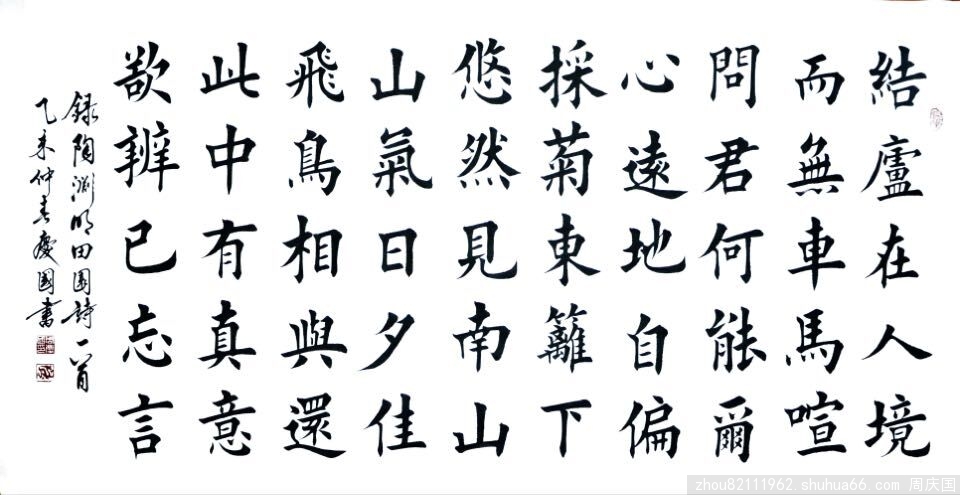 結廬在人境
而無車馬喧
問君何能爾
心遠地自偏
採菊東籬下
悠然見南山
山氣日夕佳
飛鳥相與還
此中有真意
欲辨已忘言
録陶淵明田園詩一首
乙未仲春慶國書
zhou82111962. shuhua66.com 周庆国